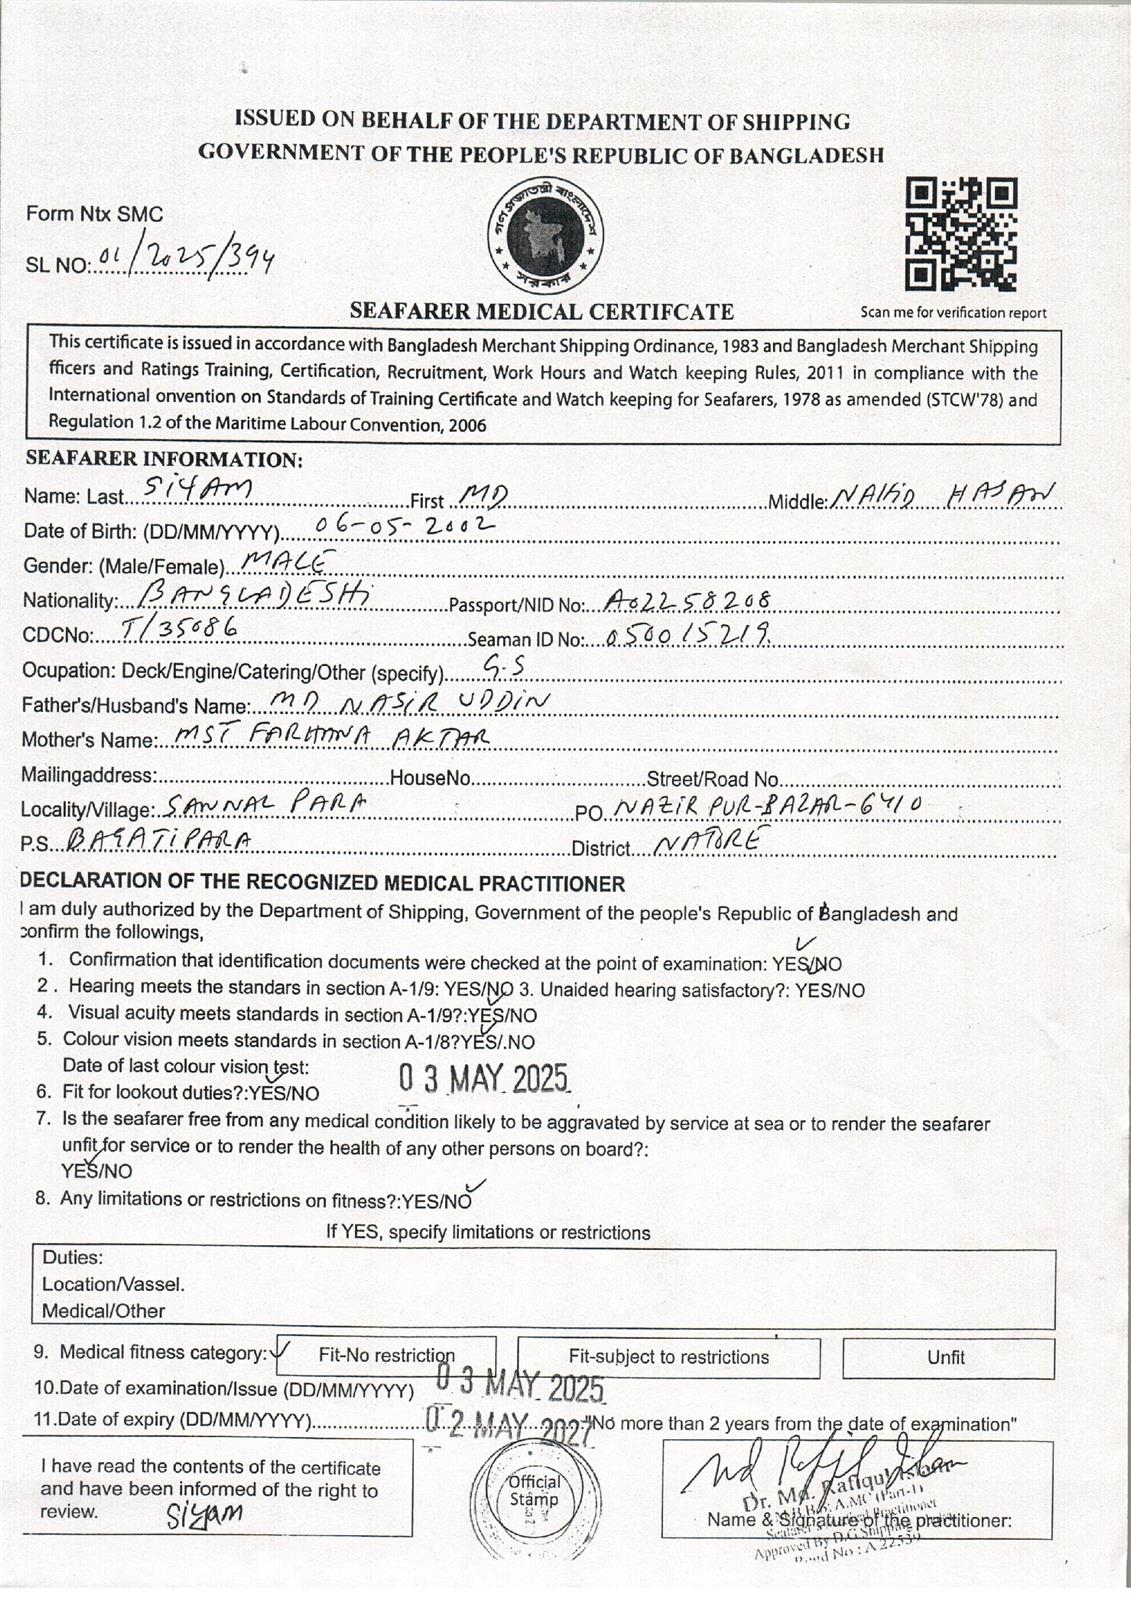 ISSUED ON BEHALF OF THE DEPARTMENT OF SHIPPING
GOVERNMENT OF THE PEOPLE'S REPUBLIC OF BANGLADESH
গণপ্রজাতন্ত্রী বাংলাদেশ
সরকার
Form Ntx SMC
SL NO:01/2025/394
SEAFARER MEDICAL CERTIFCATE
Scan me for verification report
This certificate is issued in accordance with Bangladesh Merchant Shipping Ordinance, 1983 and Bangladesh Merchant Shipping
fficers and Ratings Training, Certification, Recruitment, Work Hours and Watch keeping Rules, 2011 in compliance with the
International onvention on Standards of Training Certificate and Watch keeping for Seafarers, 1978 as amended (STCW'78) and
Regulation 1.2 of the Maritime Labour Convention, 2006
SEAFARER INFORMATION:
Name: Last SIYAM First MD Middle: NAHID HASAN
Date of Birth: (DD/MM/YYYY) 06-05-2002
Gender: (Male/Female) MALE
Nationality: BANGLADESHI Passport/NID No: A02258208
CDCNo: T/35086 Seaman ID No: 050015219
Ocupation: Deck/Engine/Catering/Other (specify) G.S
Father's/Husband's Name: MD NASIR UDDIN
Mother's Name: MST FARHANA AKTAR
Mailingaddress: HouseNo Street/Road No
Locality/Village: SANNAL PARA PO NAZIR PUR-BAZAR-6410
P.S BAGATIPARA District NATORE
DECLARATION OF THE RECOGNIZED MEDICAL PRACTITIONER
I am duly authorized by the Department of Shipping, Government of the people's Republic of Bangladesh and
confirm the followings,
1. Confirmation that identification documents were checked at the point of examination: YES/NO
2 . Hearing meets the standars in section A-1/9: YES/NO 3. Unaided hearing satisfactory?: YES/NO
4. Visual acuity meets standards in section A-1/9?:YES/NO
5. Colour vision meets standards in section A-1/8?YES/.NO
Date of last colour vision test: 03 MAY 2025
6. Fit for lookout duties?:YES/NO
7. Is the seafarer free from any medical condition likely to be aggravated by service at sea or to render the seafarer
unfit for service or to render the health of any other persons on board?:
YES/NO
8. Any limitations or restrictions on fitness?:YES/NO
If YES, specify limitations or restrictions
Duties:
Location/Vassel.
Medical/Other
9. Medical fitness category: Fit-No restriction Fit-subject to restrictions Unfit
10.Date of examination/Issue (DD/MM/YYYY) 03 MAY 2025
11.Date of expiry (DD/MM/YYYY) 02 MAY 2027 "No more than 2 years from the date of examination"
I have read the contents of the certificate
and have been informed of the right to
review. Siyam
Official
Stamp
Dr. Md. Rafiqul Islam
Name & Signature of the practitioner:
Approved By D.G Shipping